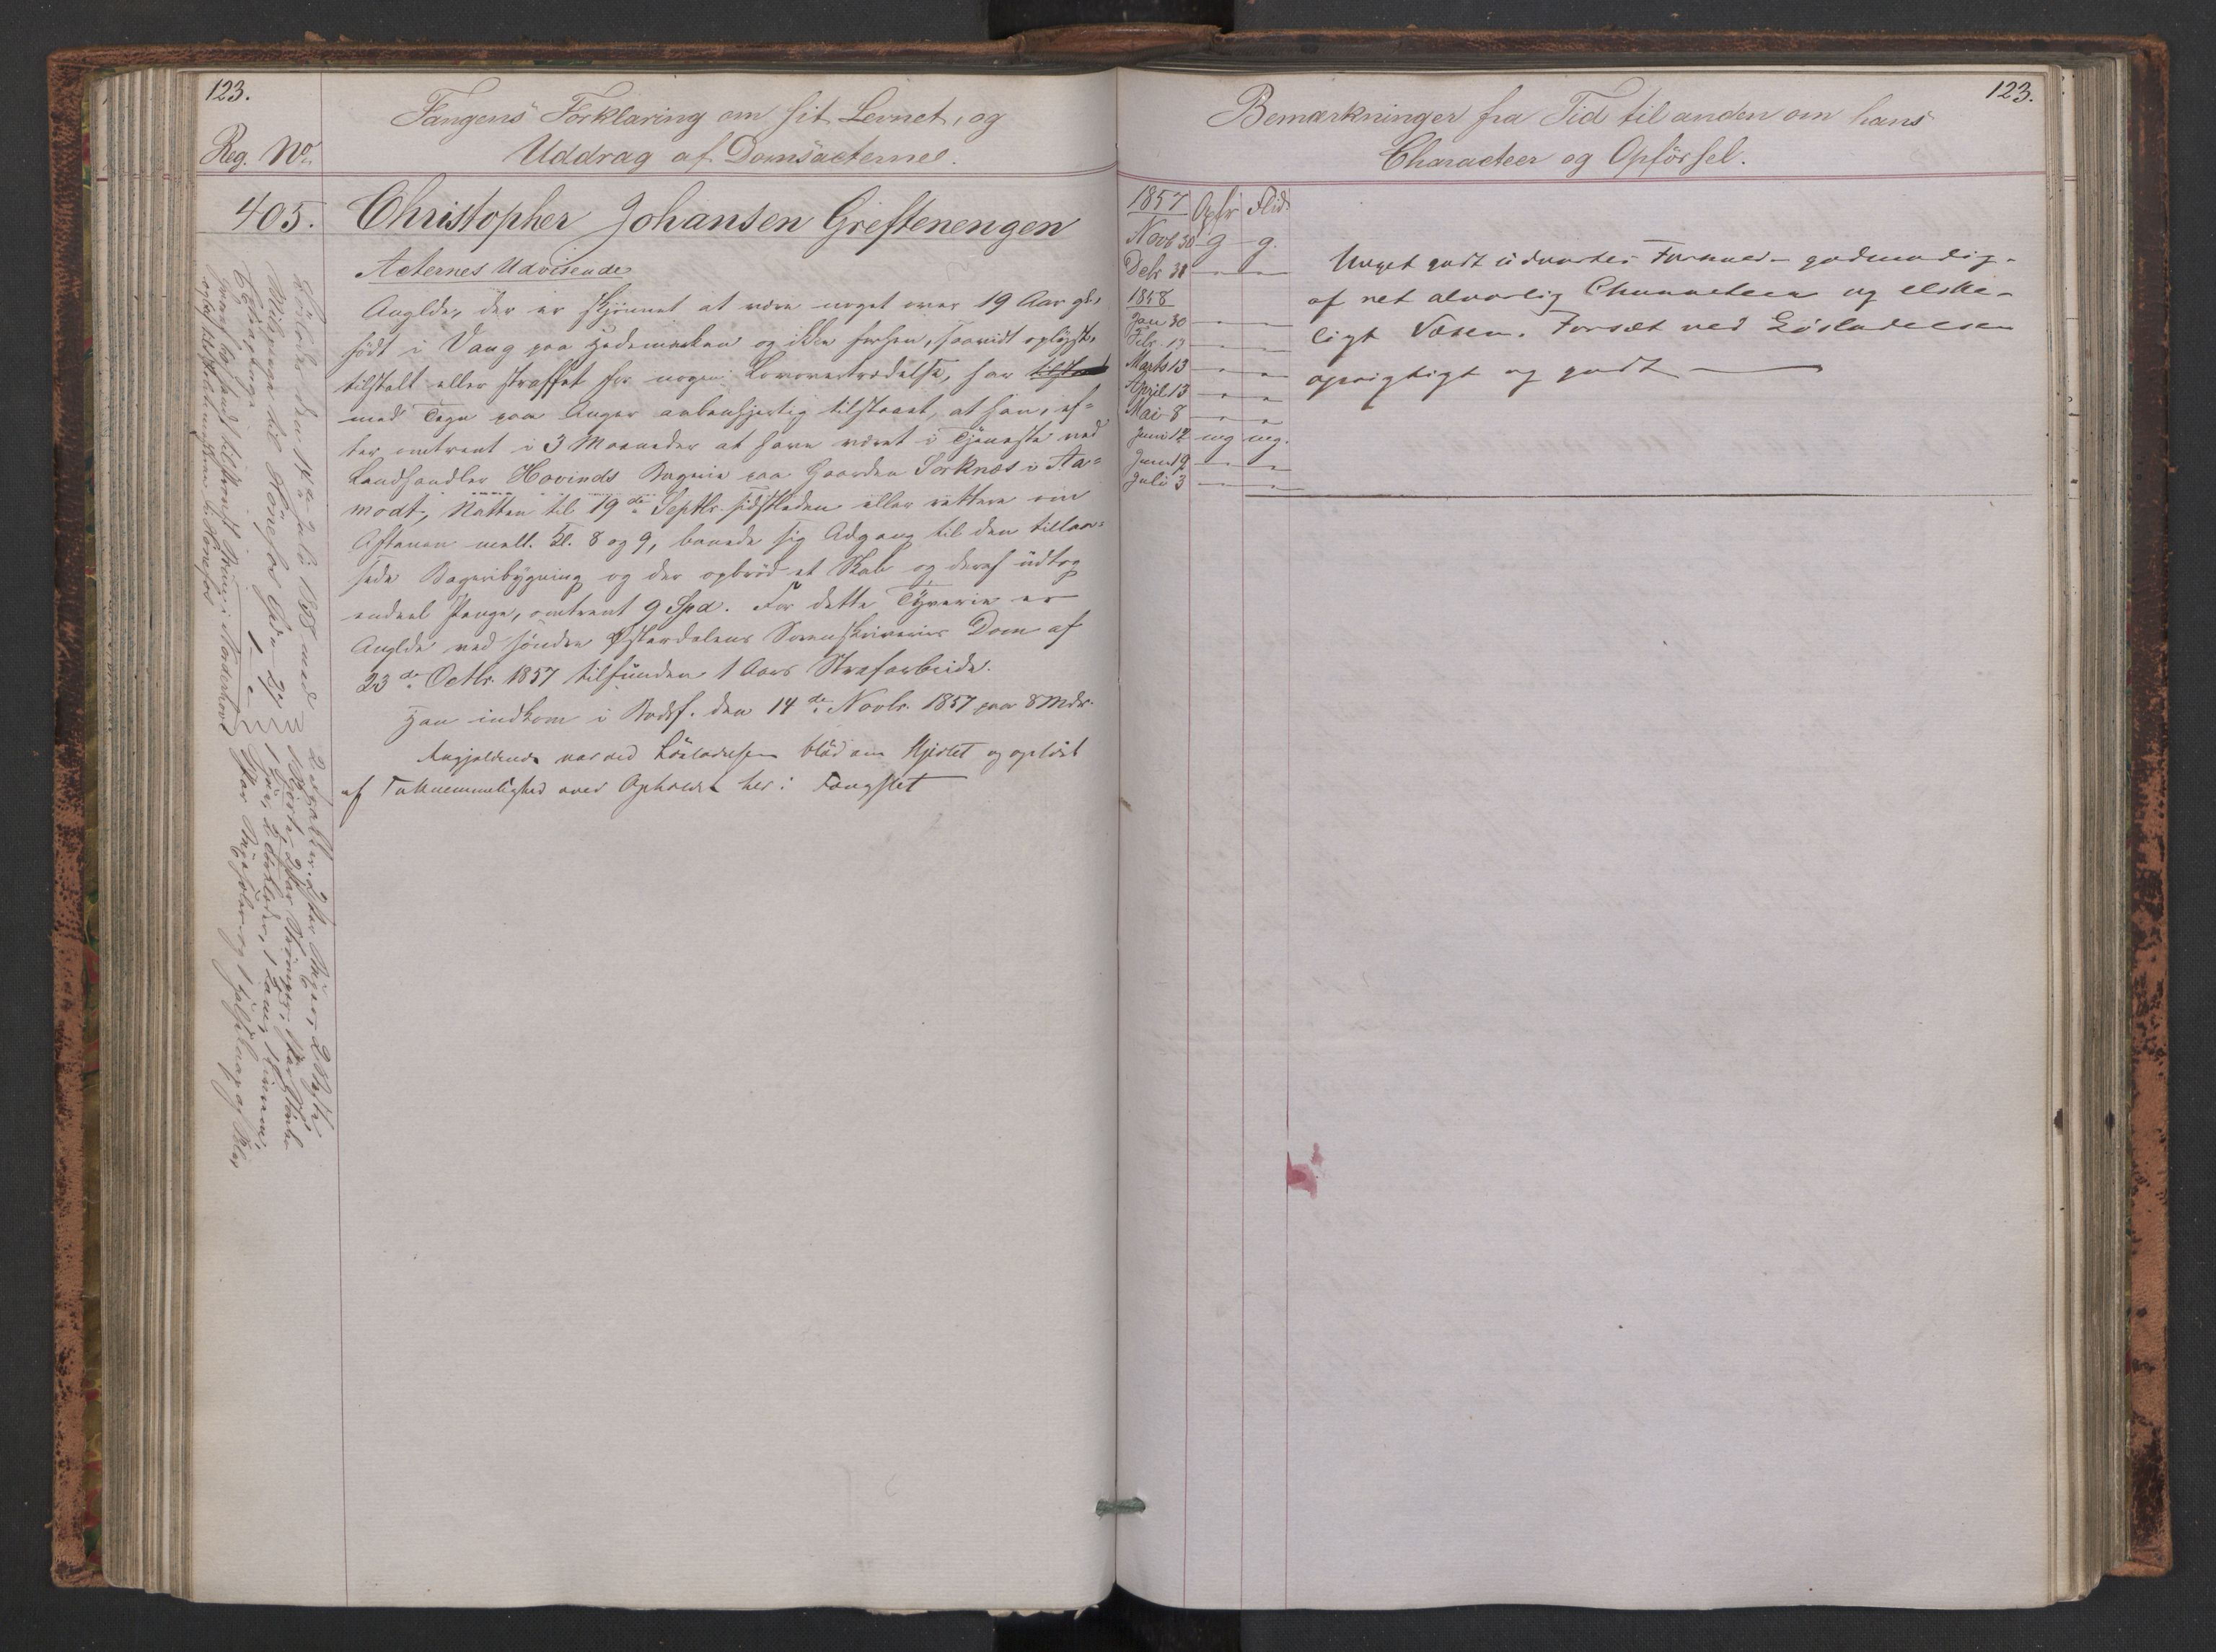 123.
Reg. No.
Fangens Forklaring om sit Levnet, og
Uddrag af Domsacterne.
405.
Christopher Johansen Greftenengen
Acternes Udvisende
Anglde, der er skjönnet at være noget over 19 Aar gl.,
født i Vang paa Hedemarken og ikke forhen, saavidt oplyst,
tiltalt eller straffet for nogen Lovovertrædelse, har
med Tegn paa Anger aabenhjertig tilstaaet, at han, ef-
ter omtrent i 3 Maaneder at have været i Tjeneste ved
Landhandler Hovinds Bageri paa Gaarden Sorknæs i Aa-
modt, Natten til 19de Septbr. sidstleden eller rettere om
Aftenen mell. Kl. 8 og 9, banede sig Adgang til den tillaa-
sede Bageribygning og der opbröd et Skab og deraf udtog
endeel Penge, omtrent 9 Spd. For dette Tyverie er
Anglde ved søndre Østerdalens Sorenskriveries Dom af
23de Octbr. 1857 tilfunden 1 Aars Strafarbeide.
Han indkom i Bodsf. den 14de Novbr. 1857 paa 8 Mdr.
Angjeldende var ved Löslatelsen blöd om Hjertet og oplöst
af Taknemmelighed over Opholdet her i Fængslet
Löslades den 14de Juli 1858 med
Milepenge til Hönefos
1
2 Skjorter, 2 Par Strömper,
123.
Bemærkninger fra Tid til anden om hans
Characteer og Opförsel.
1857 Opfr Flid.
Novb 30 g g.
Debr 31 — —
1858
Jan 30 — —
Febr. 13 — —
Marts 13 — —
April 13 — —
Mai 8 — —
Juni 12 mg mg.
Juni 19 — —
Juli 3 — —
Meget godt udvortes Forhold – godmodig –
af ret alvorlig Characteer og elske-
ligt Væsen. Forsæt ved Løsladelsen
oprigtigt og godt